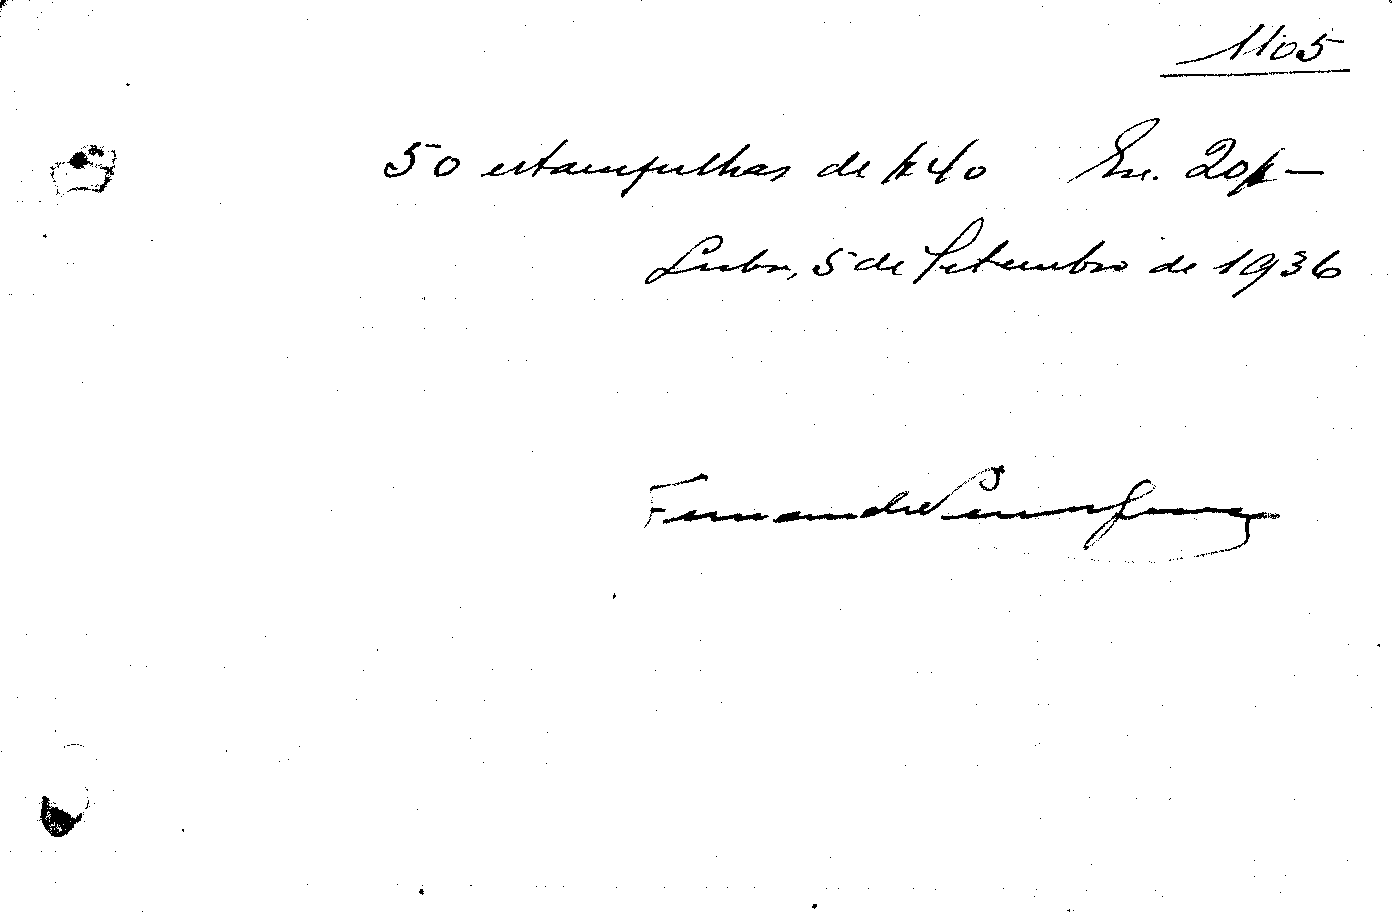 1105
50 estampilhas de $40 Esc. 20$—
Lisboa, 5 de Setembro de 1936
Fernando